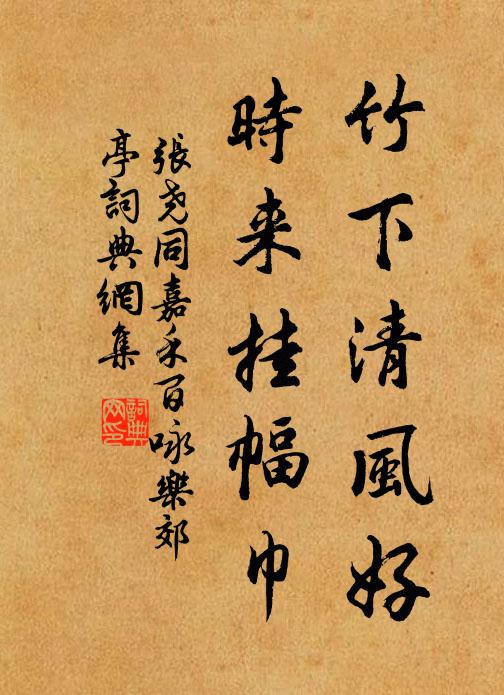 竹下清風好
時来挂幅巾
張尭同嘉禾百咏樂郊
亭詞典網集
詞典网印